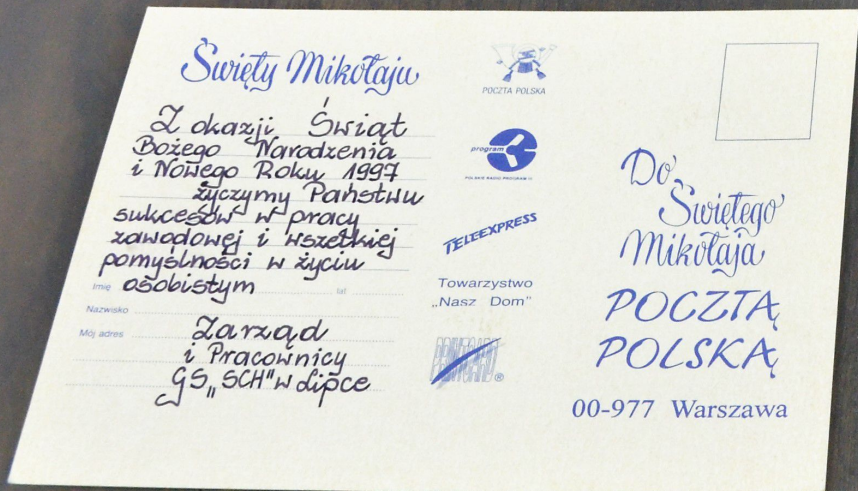 Święty Mikołaju
Z okazji Świąt
Bożego Narodzenia
i Nowego Roku 1997
życzymy Państwu
sukcesów w pracy
zawodowej i wszelkiej
pomyślności w życiu
osobistym
Imię
lat
Nazwisko
Mój adres
Zarząd
i Pracownicy
GS „SCH" w Lipce
POCZTA POLSKA
program
POLSKIE RADIO PROGRAM III
TELEEXPRESS
Towarzystwo
„Nasz Dom"
®
Do
Świętego
Mikołaja
POCZTĄ
POLSKĄ
00-977 Warszawa